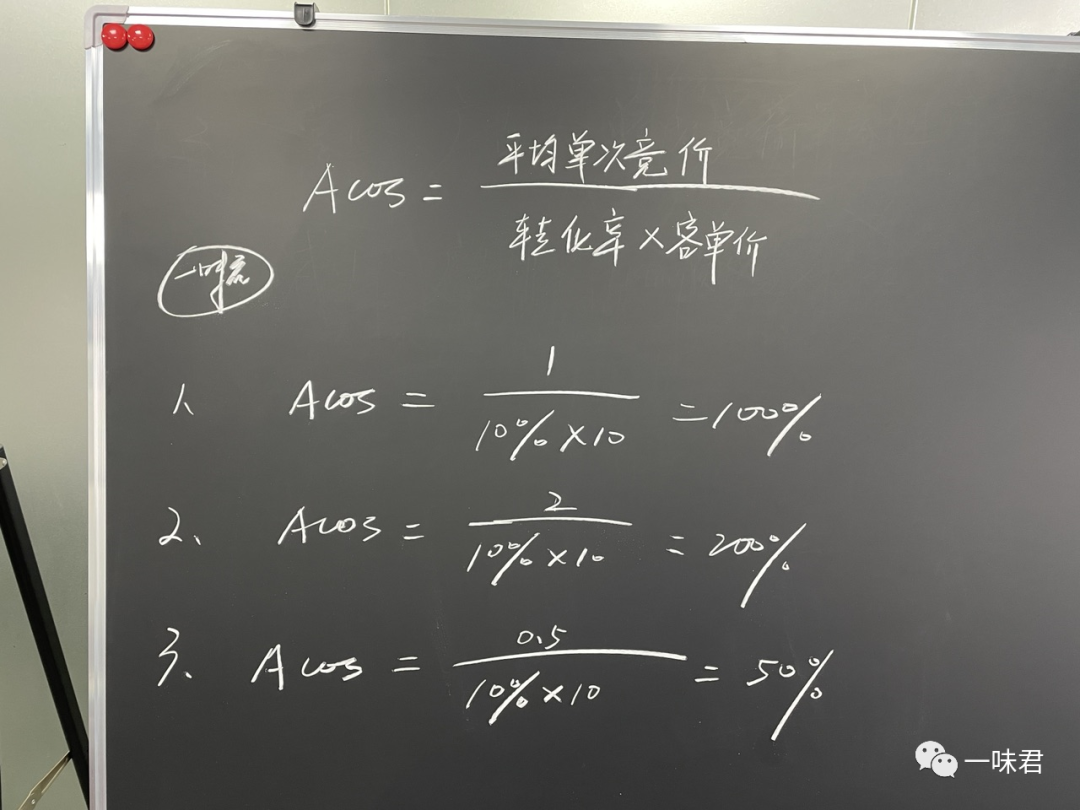 Acos = 平均单次竞价 / 转化率 × 客单价
一味君
1、 Acos = 1 / 10% × 10 = 100%
2、 Acos = 2 / 10% × 10 = 200%
3、 Acos = 0.5 / 10% × 10 = 50%
一味君